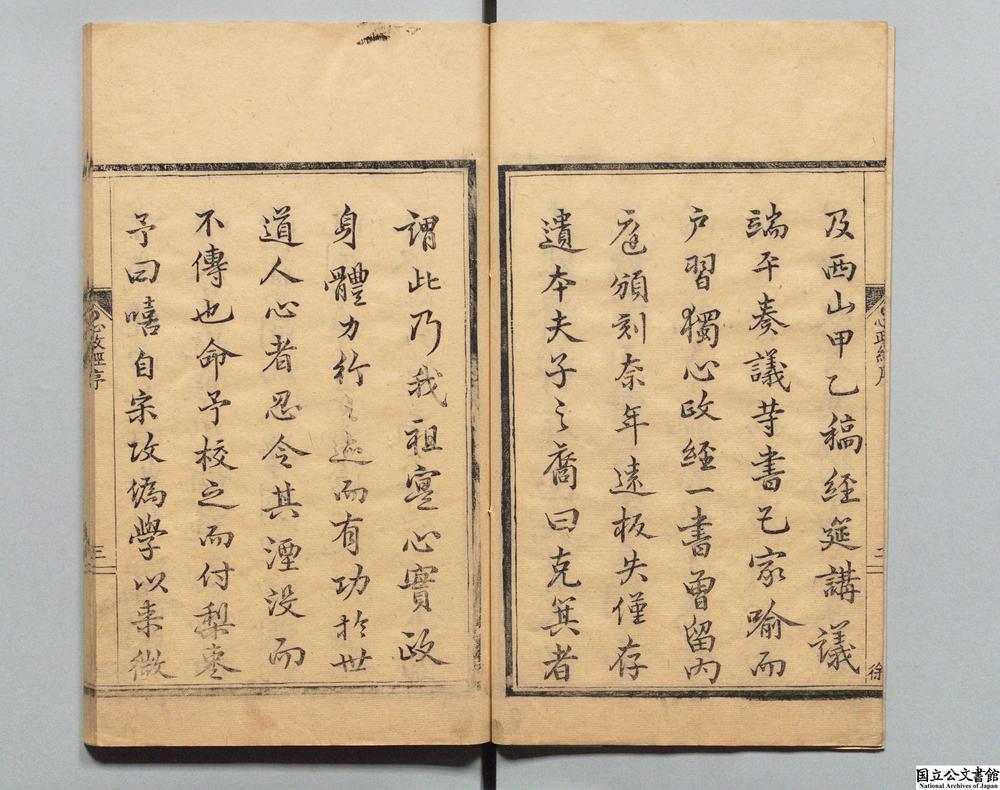 及西山甲乙稿経筵講議
端平奏議等書已家喻而
户習獨心政經一書曾留內
庭頒刻奈年逺板失僅存
遺本夫子之裔曰克箕者
心政經序
二
徐
謂此乃我祖寔心實政
身體力行之迹而有功於世
道人心者忍令其湮没而
不傳也命予校之而付梨棗
予曰嘻自宗攻偽學以来微
心政經序
三
国立公文書館
National Archives of Japan